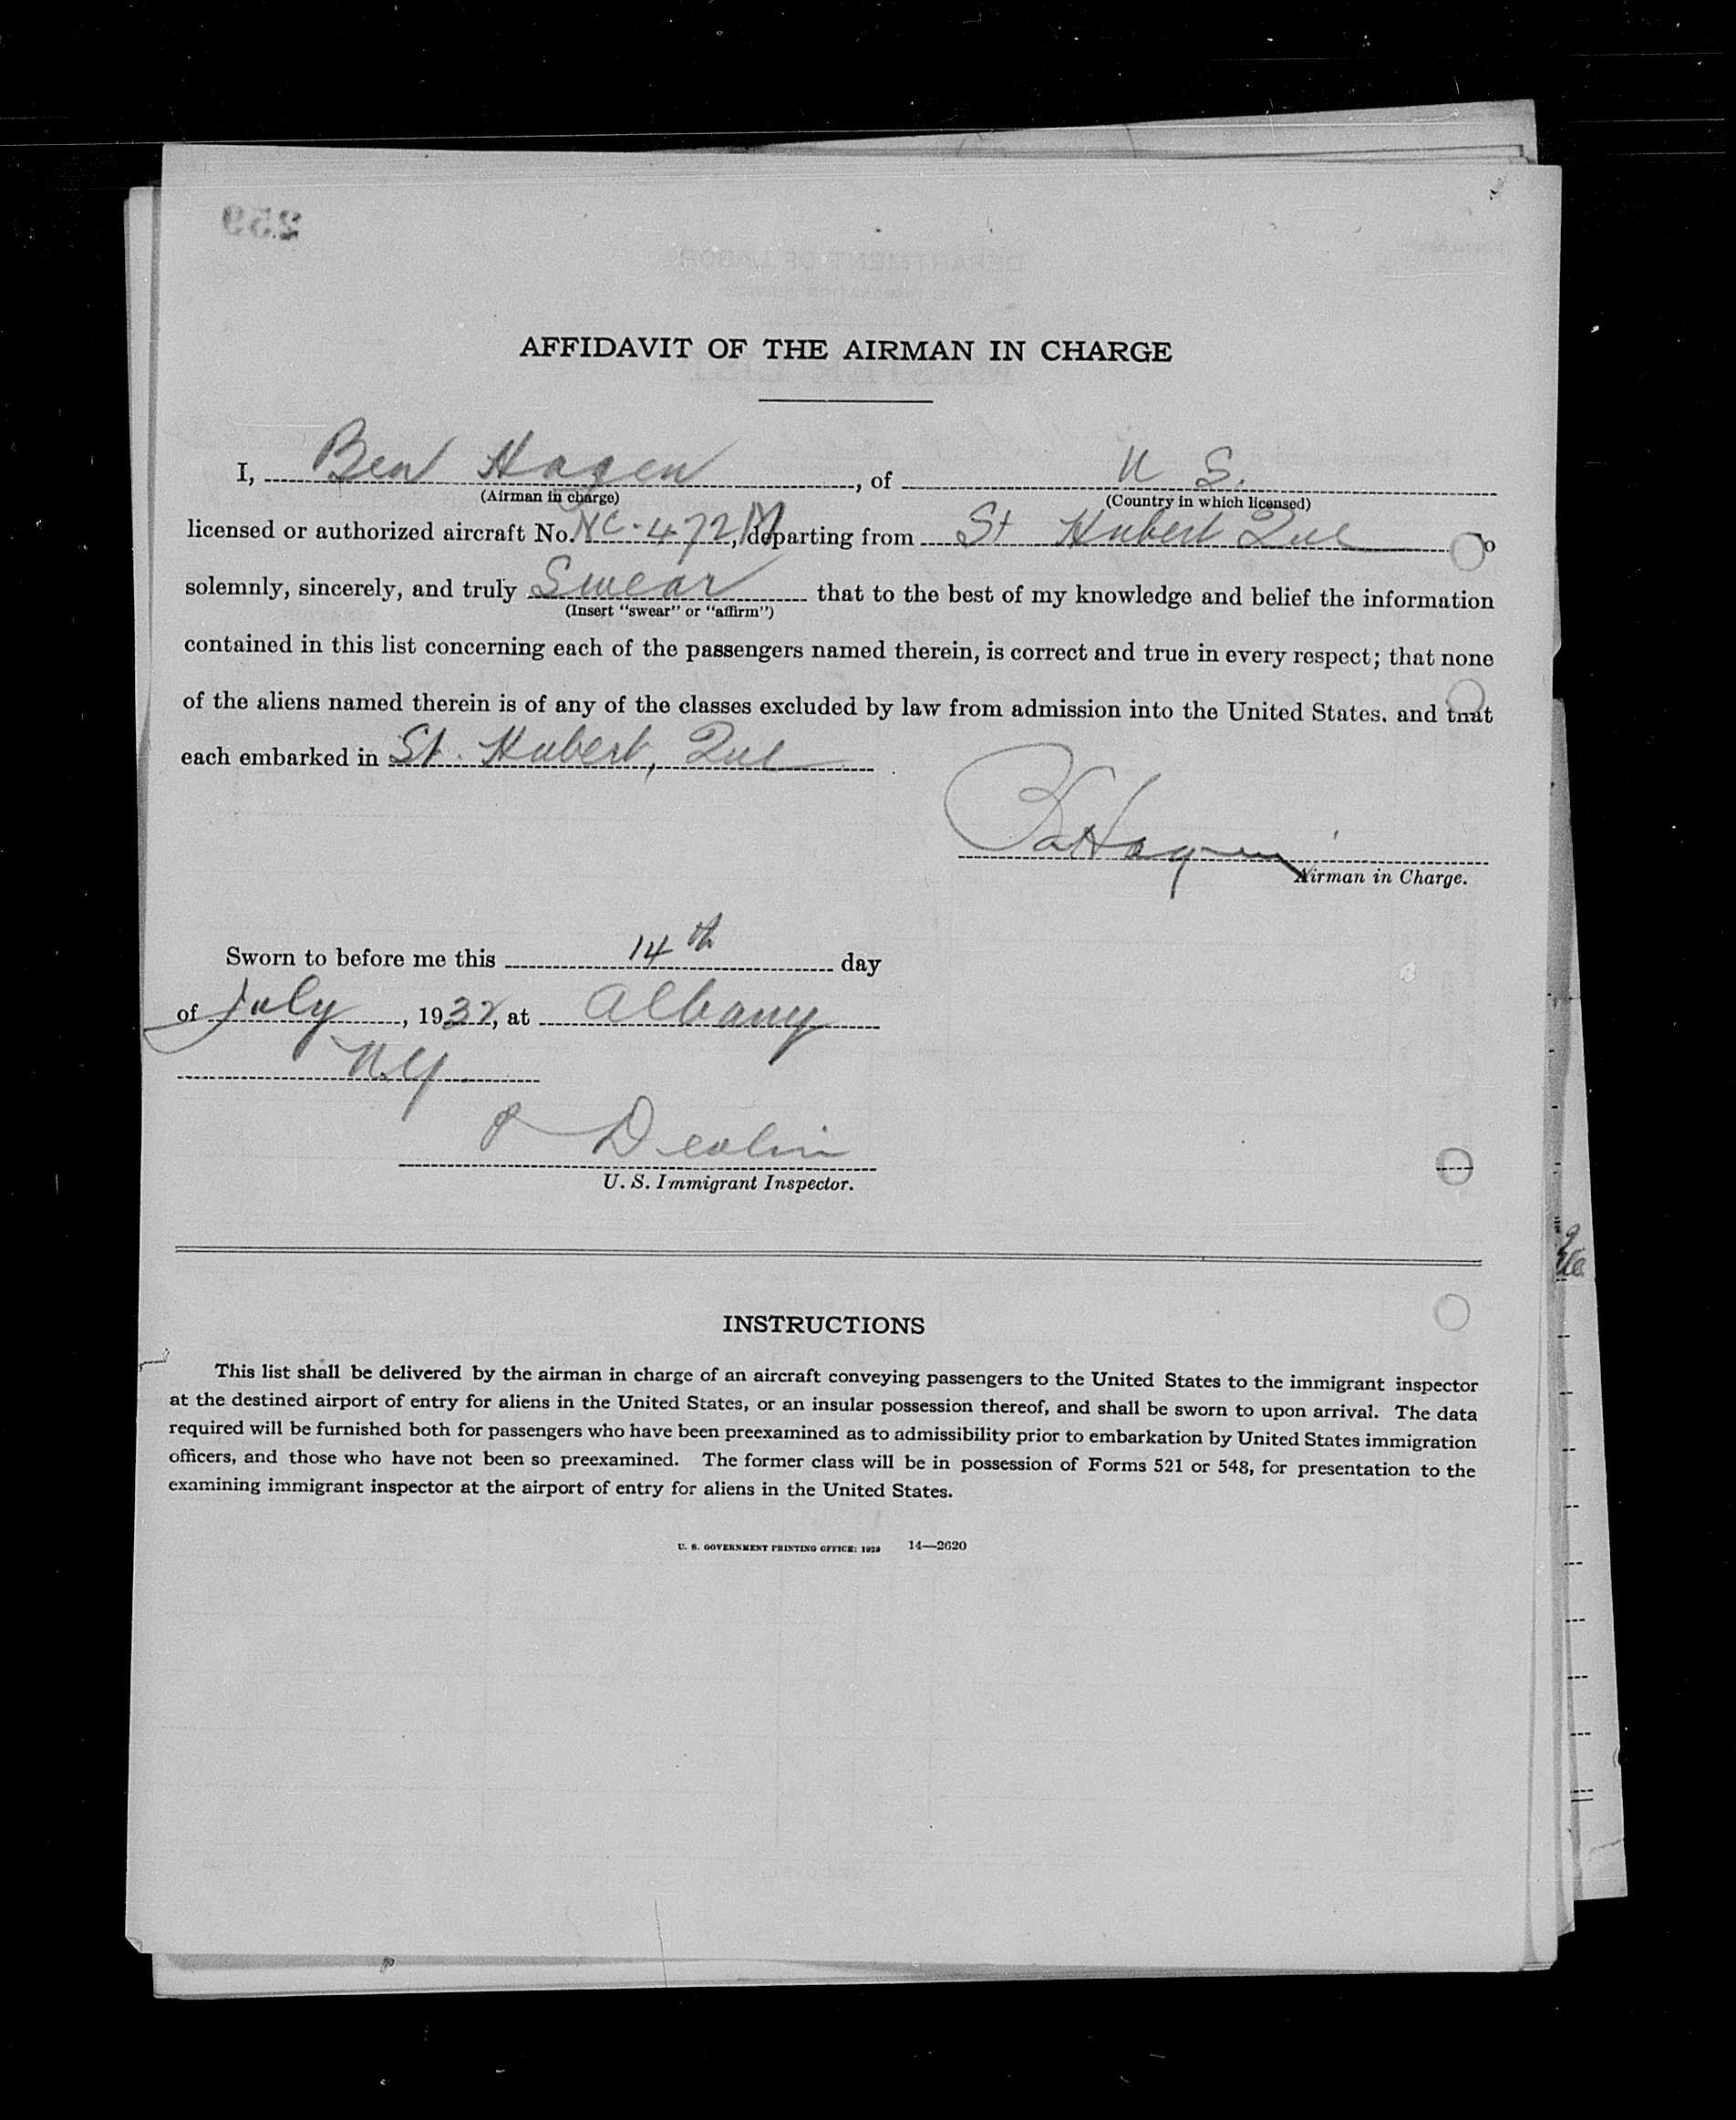 259
AFFIDAVIT OF THE AIRMAN IN CHARGE
I, Ben Hagen, of U S.
(Airman in charge) (Country in which licensed)
licensed or authorized aircraft No. NC-472M, departing from St Hubert Que do
solemnly, sincerely, and truly Swear that to the best of my knowledge and belief the information
(Insert "swear" or "affirm")
contained in this list concerning each of the passengers named therein, is correct and true in every respect; that none
of the aliens named therein is of any of the classes excluded by law from admission into the United States, and that
each embarked in St. Hubert, Que.
Hagen
Airman in Charge.
Sworn to before me this 14th day
of July, 1932, at Albany
N.Y.
Devlin
U. S. Immigrant Inspector.
INSTRUCTIONS
This list shall be delivered by the airman in charge of an aircraft conveying passengers to the United States to the immigrant inspector
at the destined airport of entry for aliens in the United States, or an insular possession thereof, and shall be sworn to upon arrival. The data
required will be furnished both for passengers who have been preexamined as to admissibility prior to embarkation by United States immigration
officers, and those who have not been so preexamined. The former class will be in possession of Forms 521 or 548, for presentation to the
examining immigrant inspector at the airport of entry for aliens in the United States.
U. S. GOVERNMENT PRINTING OFFICE: 1929 14—2620